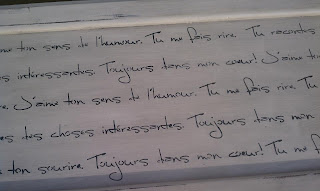 ton sens de l'humour. Tu me fais rire. Tu racontes
es intéressantes. Toujours dans mon coeur! J'aime ton
re. J'aime ton sens de l'humour. Tu me fais rire. Tu
es des choses intéressantes. Toujours dans mon
ton sourire. Toujours dans mon coeur! Tu me f